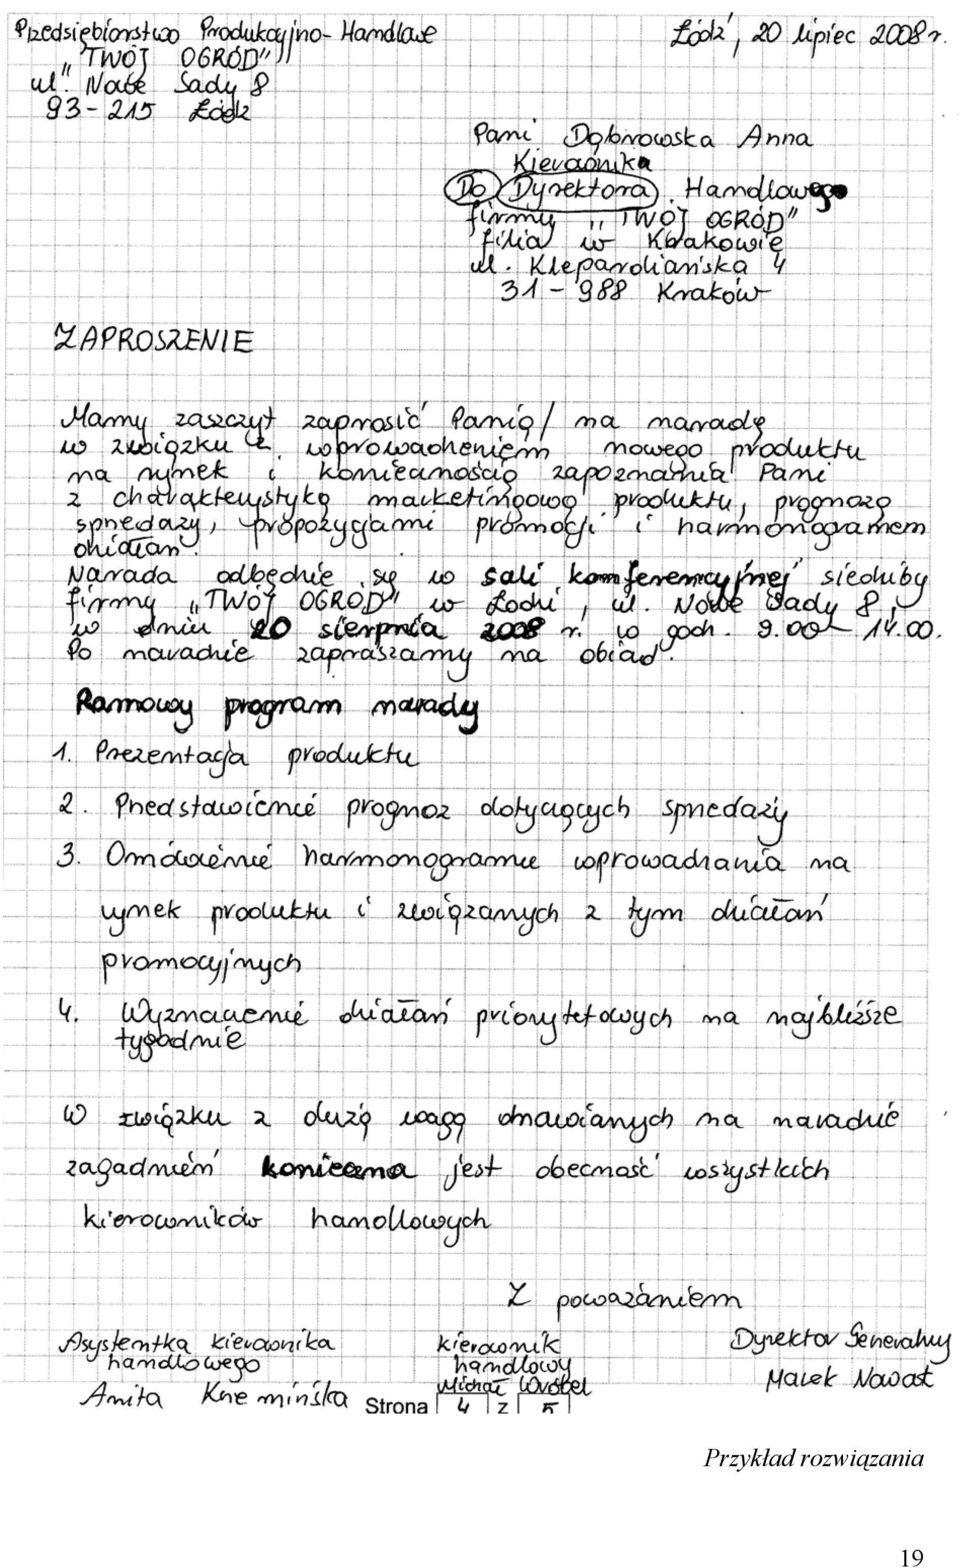 Przedsiębiorstwo Produkcyjno-Handlowe
"TWÓJ OGRÓD"
ul. Nowe Sady 8
93-215 Łódź
Łódź, 20 lipiec 2008 r.
Pani Dąbrowska Anna
Kierownika
Do Dyrektora Handlowego
firmy „TWÓJ OGRÓD"
filia w Krakowie
ul. Kleparoliańska 4
31-988 Kraków
ZAPROSZENIE
Mamy zaszczyt zaprosić Panią/ na naradę
w związku z wprowadzeniem nowego produktu
na rynek i koniecznością zapoznania Pani
z charakterystyką marketingową produktu, prognozą
sprzedaży, propozycjami promocji i harmonogramem
działań.
Narada odbędzie się w sali konferencyjnej siedziby
firmy „TWÓJ OGRÓD" w Łodzi, ul. Nowe Sady 8,
w dniu 20 sierpnia 2008 r. w godz. 9.00-14.00.
Po naradzie zapraszamy na obiad.
Ramowy program narady
1. Prezentacja produktu
2. Przedstawienie prognoz dotyczących sprzedaży
3. Omówienie harmonogramu wprowadzania na
rynek produktu i związanych z tym działań
promocyjnych
4. Wyznaczenie działań priorytetowych na najbliższe
tygodnie
W związku z dużą wagą omawianych na naradzie
zagadnień konieczna jest obecność wszystkich
kierowników handlowych
Z poważaniem
Asystentka kierownika
handlowego
Anita Krzemińska
kierownik
handlowy
Michał Wróbel
Dyrektor Generalny
Marek Nowak
Strona 4 z 5
Przykład rozwiązania
19